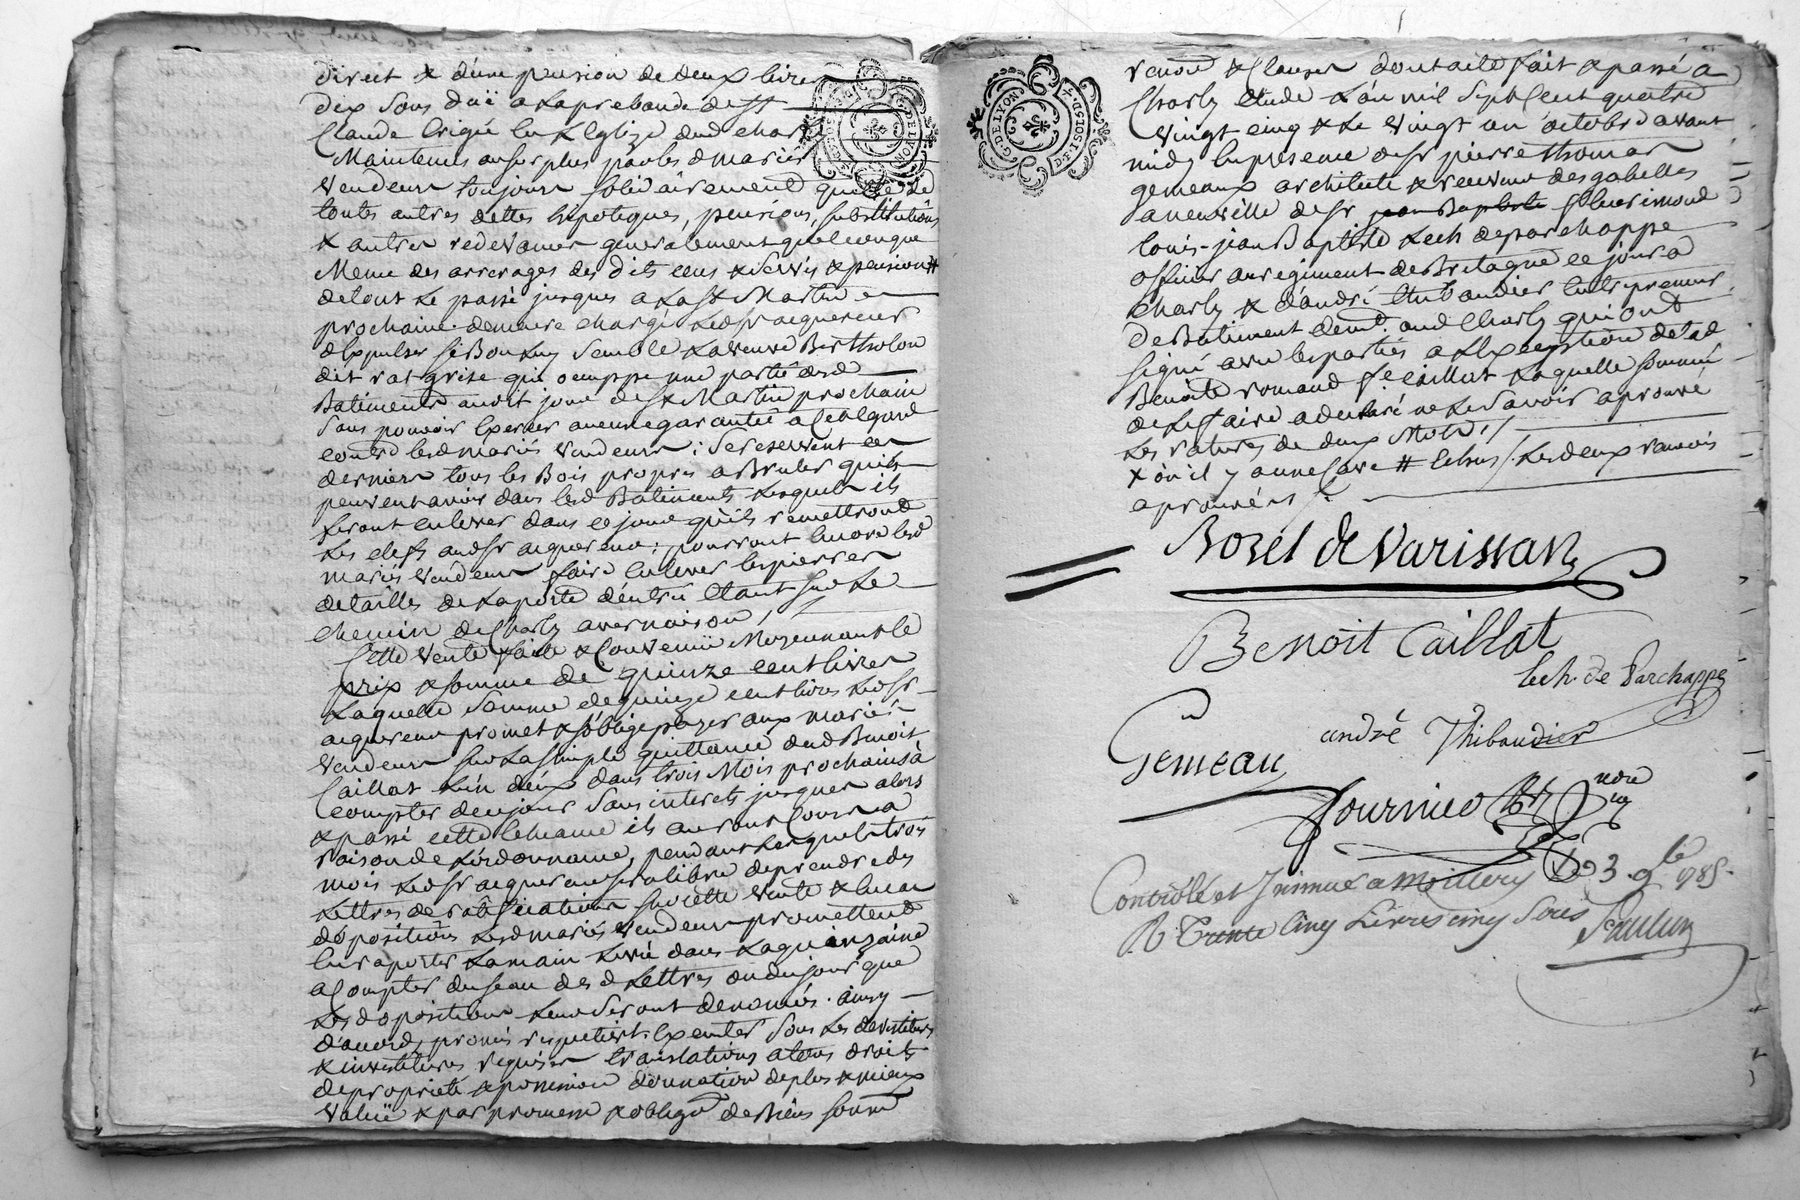 direct & d'une pension de deux livres
dix sous duë a la prebande de St
Claude Erigée en L'Eglize dud Charly
Maintenus au surplus par lesd mariés
vendeurs toujours solidairement quitte de
toutes autres dettes hipoteques, pensions, substitutions
& autres redevances generalement quelconque
Meme des arrerages des dits cens & servis & pension #
de tout le passé jusques a la St Martin
prochaine. demeure chargé ledsr acquereur
d'Expulser & la veuve Bertholon
dit rat grise qui occuppe une partie desd
Batiments audit jour de St Martin prochain
sans pouvoir Exercer aucune garantie a cet Egard
contre lesd mariés vendeurs; se reservent ces
derniers tous les Bois propres a Bruler qu'ils
peuvent avoir dans lesd Batiments lesquels ils
feront enlever dans ce jour qu'ils remettront
les clefs audsr acquereur; pourront encore lesd
mariés vendeurs faire enlever les pierres
de tailles de la porte d'entrée Etant sur le
chemin de Charly a vernaison /
Cette vente faite & Convenuë Moyennant le
prix & somme de quinze cent livres
Laquelle somme de quinze cent livres ledsr
acquereur promet & s'oblige payer aux mariés
vendeurs sur la simple quittance dud Benoit
Caillat L'un d'eux dans trois Mois prochains à
compter de ce jour sans interets jusques alors
& passé cette Echeance ils auront Cours a
raison de L'ordonnance, pendant lesquels trois
mois ledsr acquereur sera libre de prendre des
Lettres de ratification sur cette vente & en cas
d'opositions lesd mariés vendeurs promettent
en raporter la main levée dans la quinzaine
a Compter du sceau desd Lettres ou du jour que
les opositions leur seront denoncés. ainsy
d'accord, promis respectivt. Executer sous les devestitures
& investitures requises translations a tous droits
de proprieté & possession donnation de plus & mieux
valuë & par promesse & obligon de Biens soumn
renon & Clauses dont acte fait & passé a
Charly Etude L'an mil sept Cent quatre
vingt cinq & le vingt un octobre avant
midy En presence de sr pierre thomas
gemeaux architecte & receveur des gabelles
a neuville de sr jean Baptiste
Louis-jean Baptiste Lech de parchappe
officier au regiment de Bretagne ce jour a
Charly & d'andré thibaudier Entrepreneur
de Batiment demt. aud Charly qui ont
signé avec les parties a L'Exception de lad
Benoite romand fe. Caillat Laquelle sommée
de le faire a declaré ne le savoir aprouvé
les ratures de deux Mots //
& où il y a une Cave # Echus /. les deux renvois
aprouvés /.
G. DE LYON
D. 1. SOLS. D.
Borel de Varissan
Benoit Caillat
Lech. de Parchappe
Gemeau
andré Thibaudier
fournier
Contrôlé et Insinué a Millery Le 3 9bre 1785.
R. Trente Cinq Livres cinq Sols